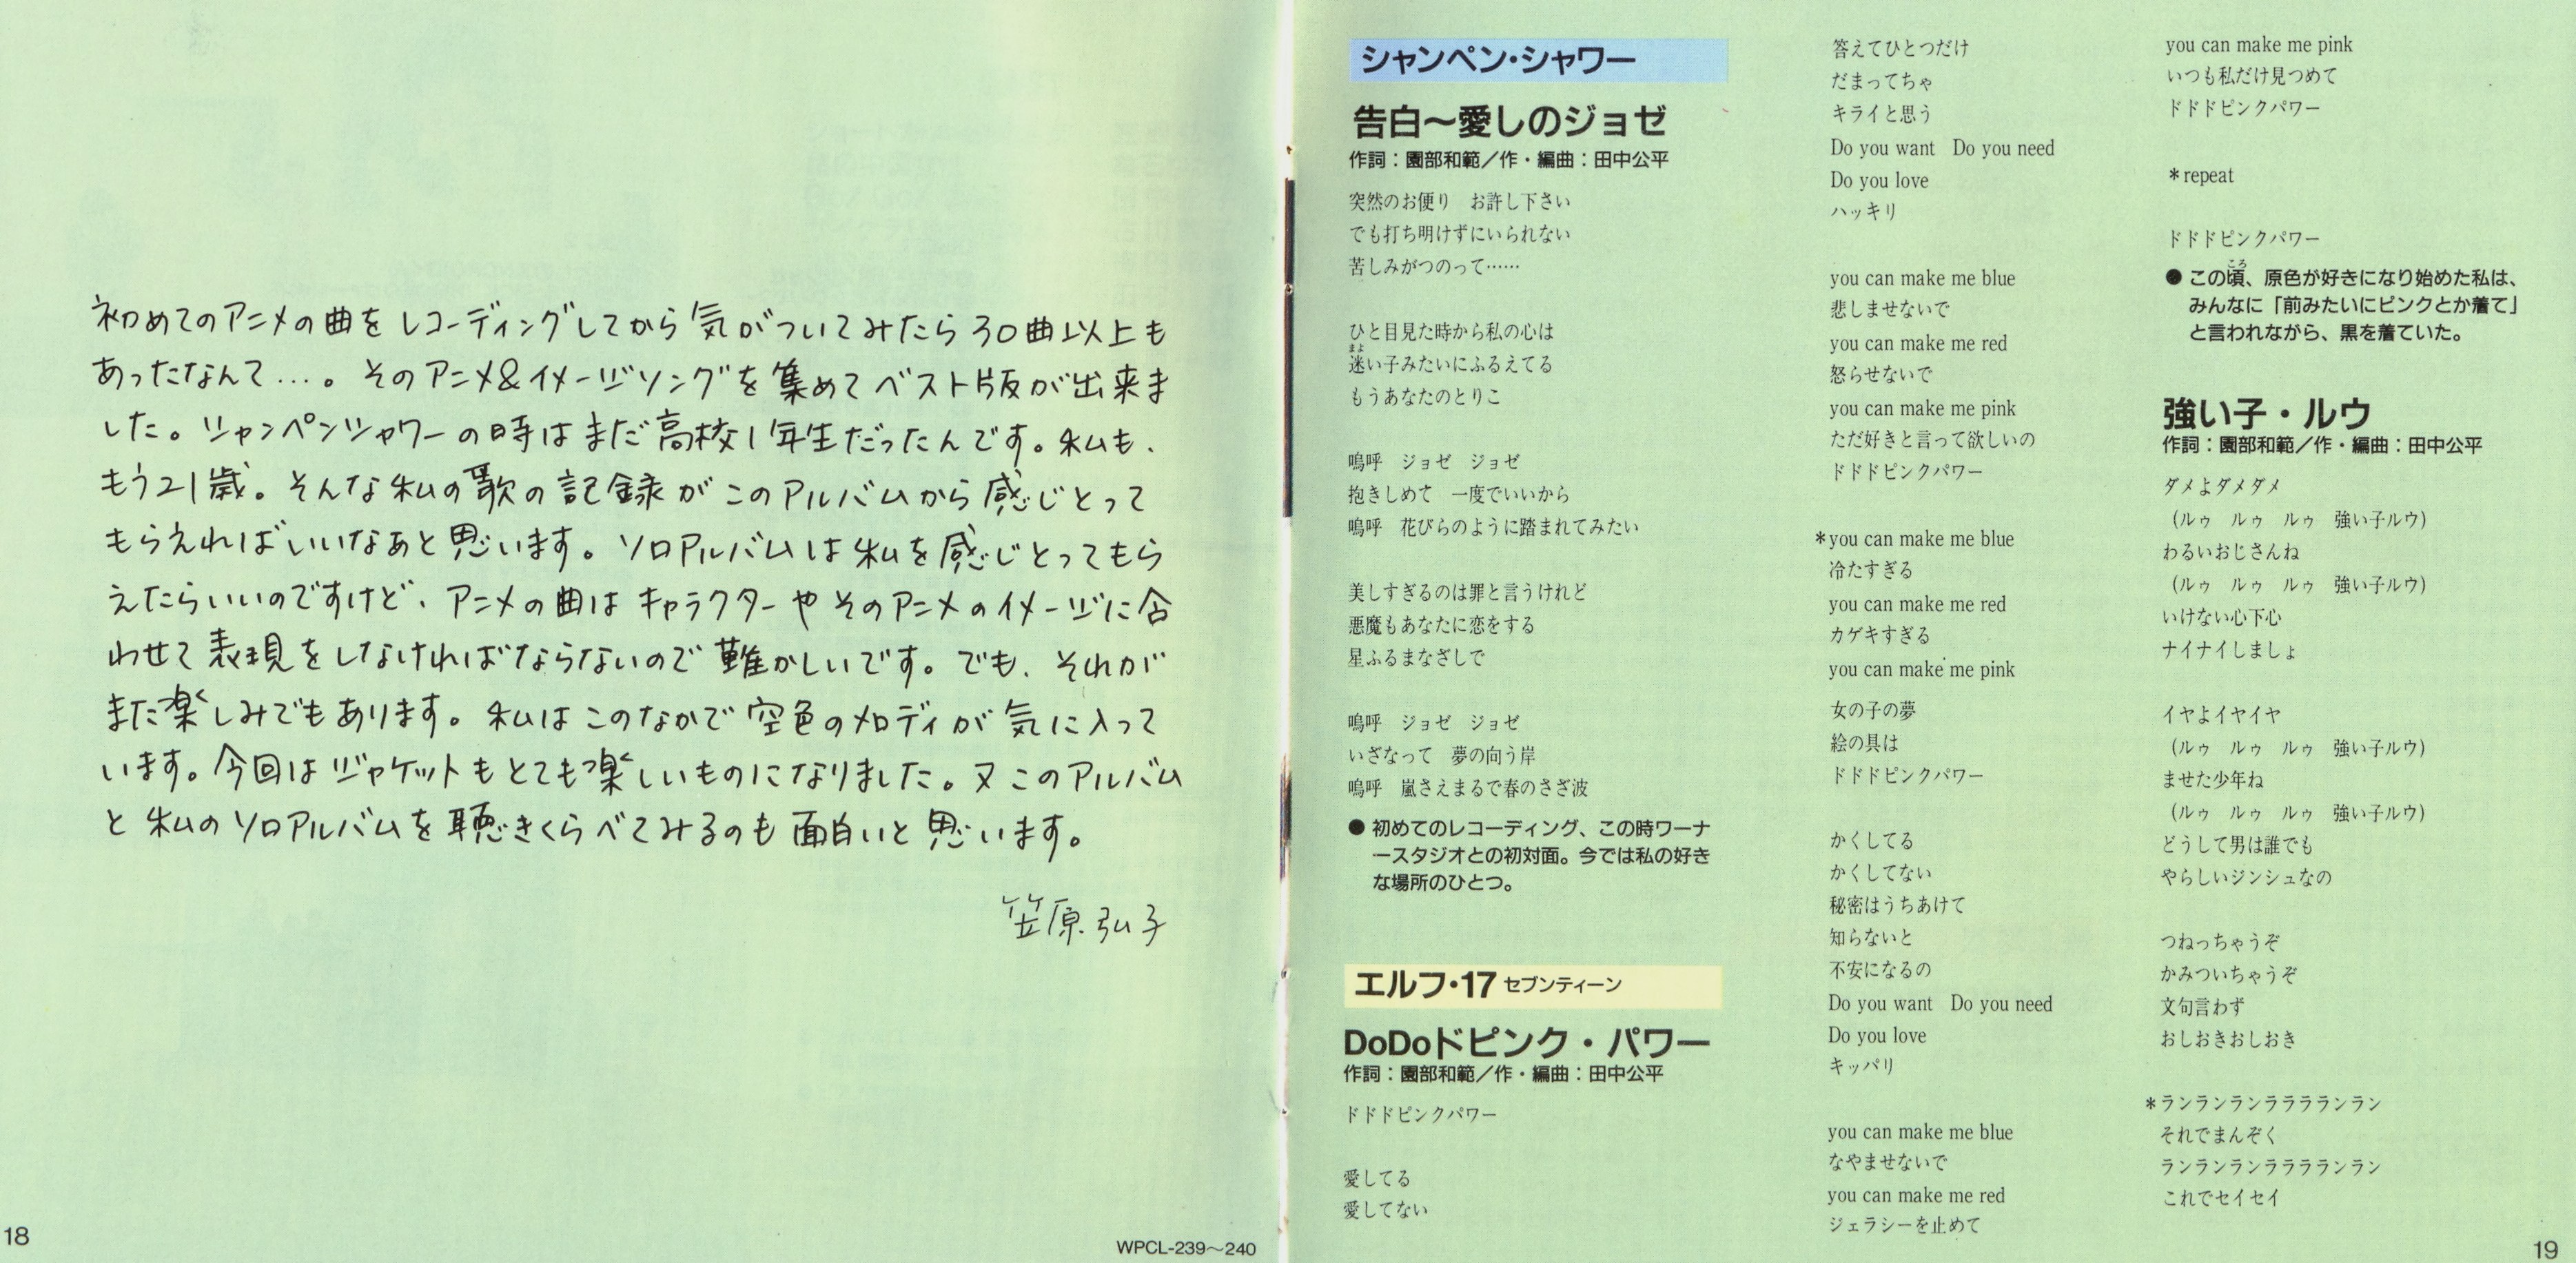 初めてのアニメの曲をレコーディングしてから気がついてみたら30曲以上も
あったなんて…。そのアニメ&イメージソングを集めてベスト版が出来ま
した。シャンペンシャワーの時はまだ高校1年生だったんです。私も、
もう21歳。そんな私の歌の記録がこのアルバムから感じとって
もらえればいいなあと思います。ソロアルバムは私を感じとってもら
えたらいいのですけど、アニメの曲はキャラクターやそのアニメのイメージに合
わせて表現をしなければならないので難かしいです。でも、それが
また楽しみでもあります。私はこのなかで空色のメロディが気に入って
います。今回はジャケットもとても楽しいものになりました。又このアルバム
と私のソロアルバムを聴きくらべてみるのも面白いと思います。
笠原弘子
18
WPCL-239〜240
シャンペン・シャワー
告白〜愛しのジョゼ
作詞：園部和範／作・編曲：田中公平
突然のお便り　お許し下さい
でも打ち明けずにいられない
苦しみがつのって……
ひと目見た時から私の心は
まよ
迷い子みたいにふるえてる
もうあなたのとりこ
嗚呼　ジョゼ　ジョゼ
抱きしめて　一度でいいから
嗚呼　花びらのように踏まれてみたい
美しすぎるのは罪と言うけれど
悪魔もあなたに恋をする
星ふるまなざしで
嗚呼　ジョゼ　ジョゼ
いざなって　夢の向う岸
嗚呼　嵐さえまるで春のさざ波
●初めてのレコーディング、この時ワーナ
ースタジオとの初対面。今では私の好き
な場所のひとつ。
エルフ・17 セブンティーン
DoDoドピンク・パワー
作詞：園部和範／作・編曲：田中公平
ドドドピンクパワー
愛してる
愛してない
答えてひとつだけ
だまってちゃ
キライと思う
Do you want　Do you need
Do you love
ハッキリ
you can make me blue
悲しませないで
you can make me red
怒らせないで
you can make me pink
ただ好きと言って欲しいの
ドドドピンクパワー
＊you can make me blue
冷たすぎる
you can make me red
カゲキすぎる
you can make me pink
女の子の夢
絵の具は
ドドドピンクパワー
かくしてる
かくしてない
秘密はうちあけて
知らないと
不安になるの
Do you want　Do you need
Do you love
キッパリ
you can make me blue
なやませないで
you can make me red
ジェラシーを止めて
you can make me pink
いつも私だけ見つめて
ドドドピンクパワー
＊repeat
ドドドピンクパワー
ころ
●この頃、原色が好きになり始めた私は、
みんなに「前みたいにピンクとか着て」
と言われながら、黒を着ていた。
強い子・ルウ
作詞：園部和範／作・編曲：田中公平
ダメよダメダメ
（ルゥ　ルゥ　ルゥ　強い子ルウ）
わるいおじさんね
（ルゥ　ルゥ　ルゥ　強い子ルウ）
いけない心下心
ナイナイしましょ
イヤよイヤイヤ
（ルゥ　ルゥ　ルゥ　強い子ルウ）
ませた少年ね
（ルゥ　ルゥ　ルゥ　強い子ルウ）
どうして男は誰でも
やらしいジンシュなの
つねっちゃうぞ
かみついちゃうぞ
文句言わず
おしおきおしおき
＊ランランランララララランラン
それでまんぞく
ランランランララララランラン
これでセイセイ
19